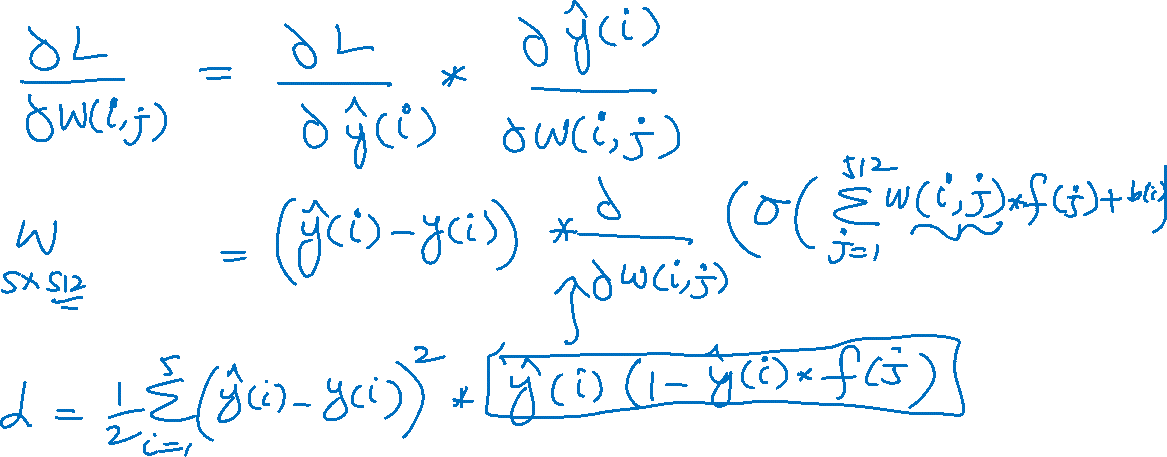 ∂L/∂W(i,j) = ∂L/∂ŷ(i) * ∂ŷ(i)/∂W(i,j)
W 5×512 = (ŷ(i) - y(i)) * ∂/∂W(i,j) (σ(∑_{j=1}^{512} W(i,j)*f(j) + b(i))
L = 1/2 ∑_{i=1}^{5} (ŷ(i) - y(i))^2 * ŷ(i) (1 - ŷ(i) * f(j)